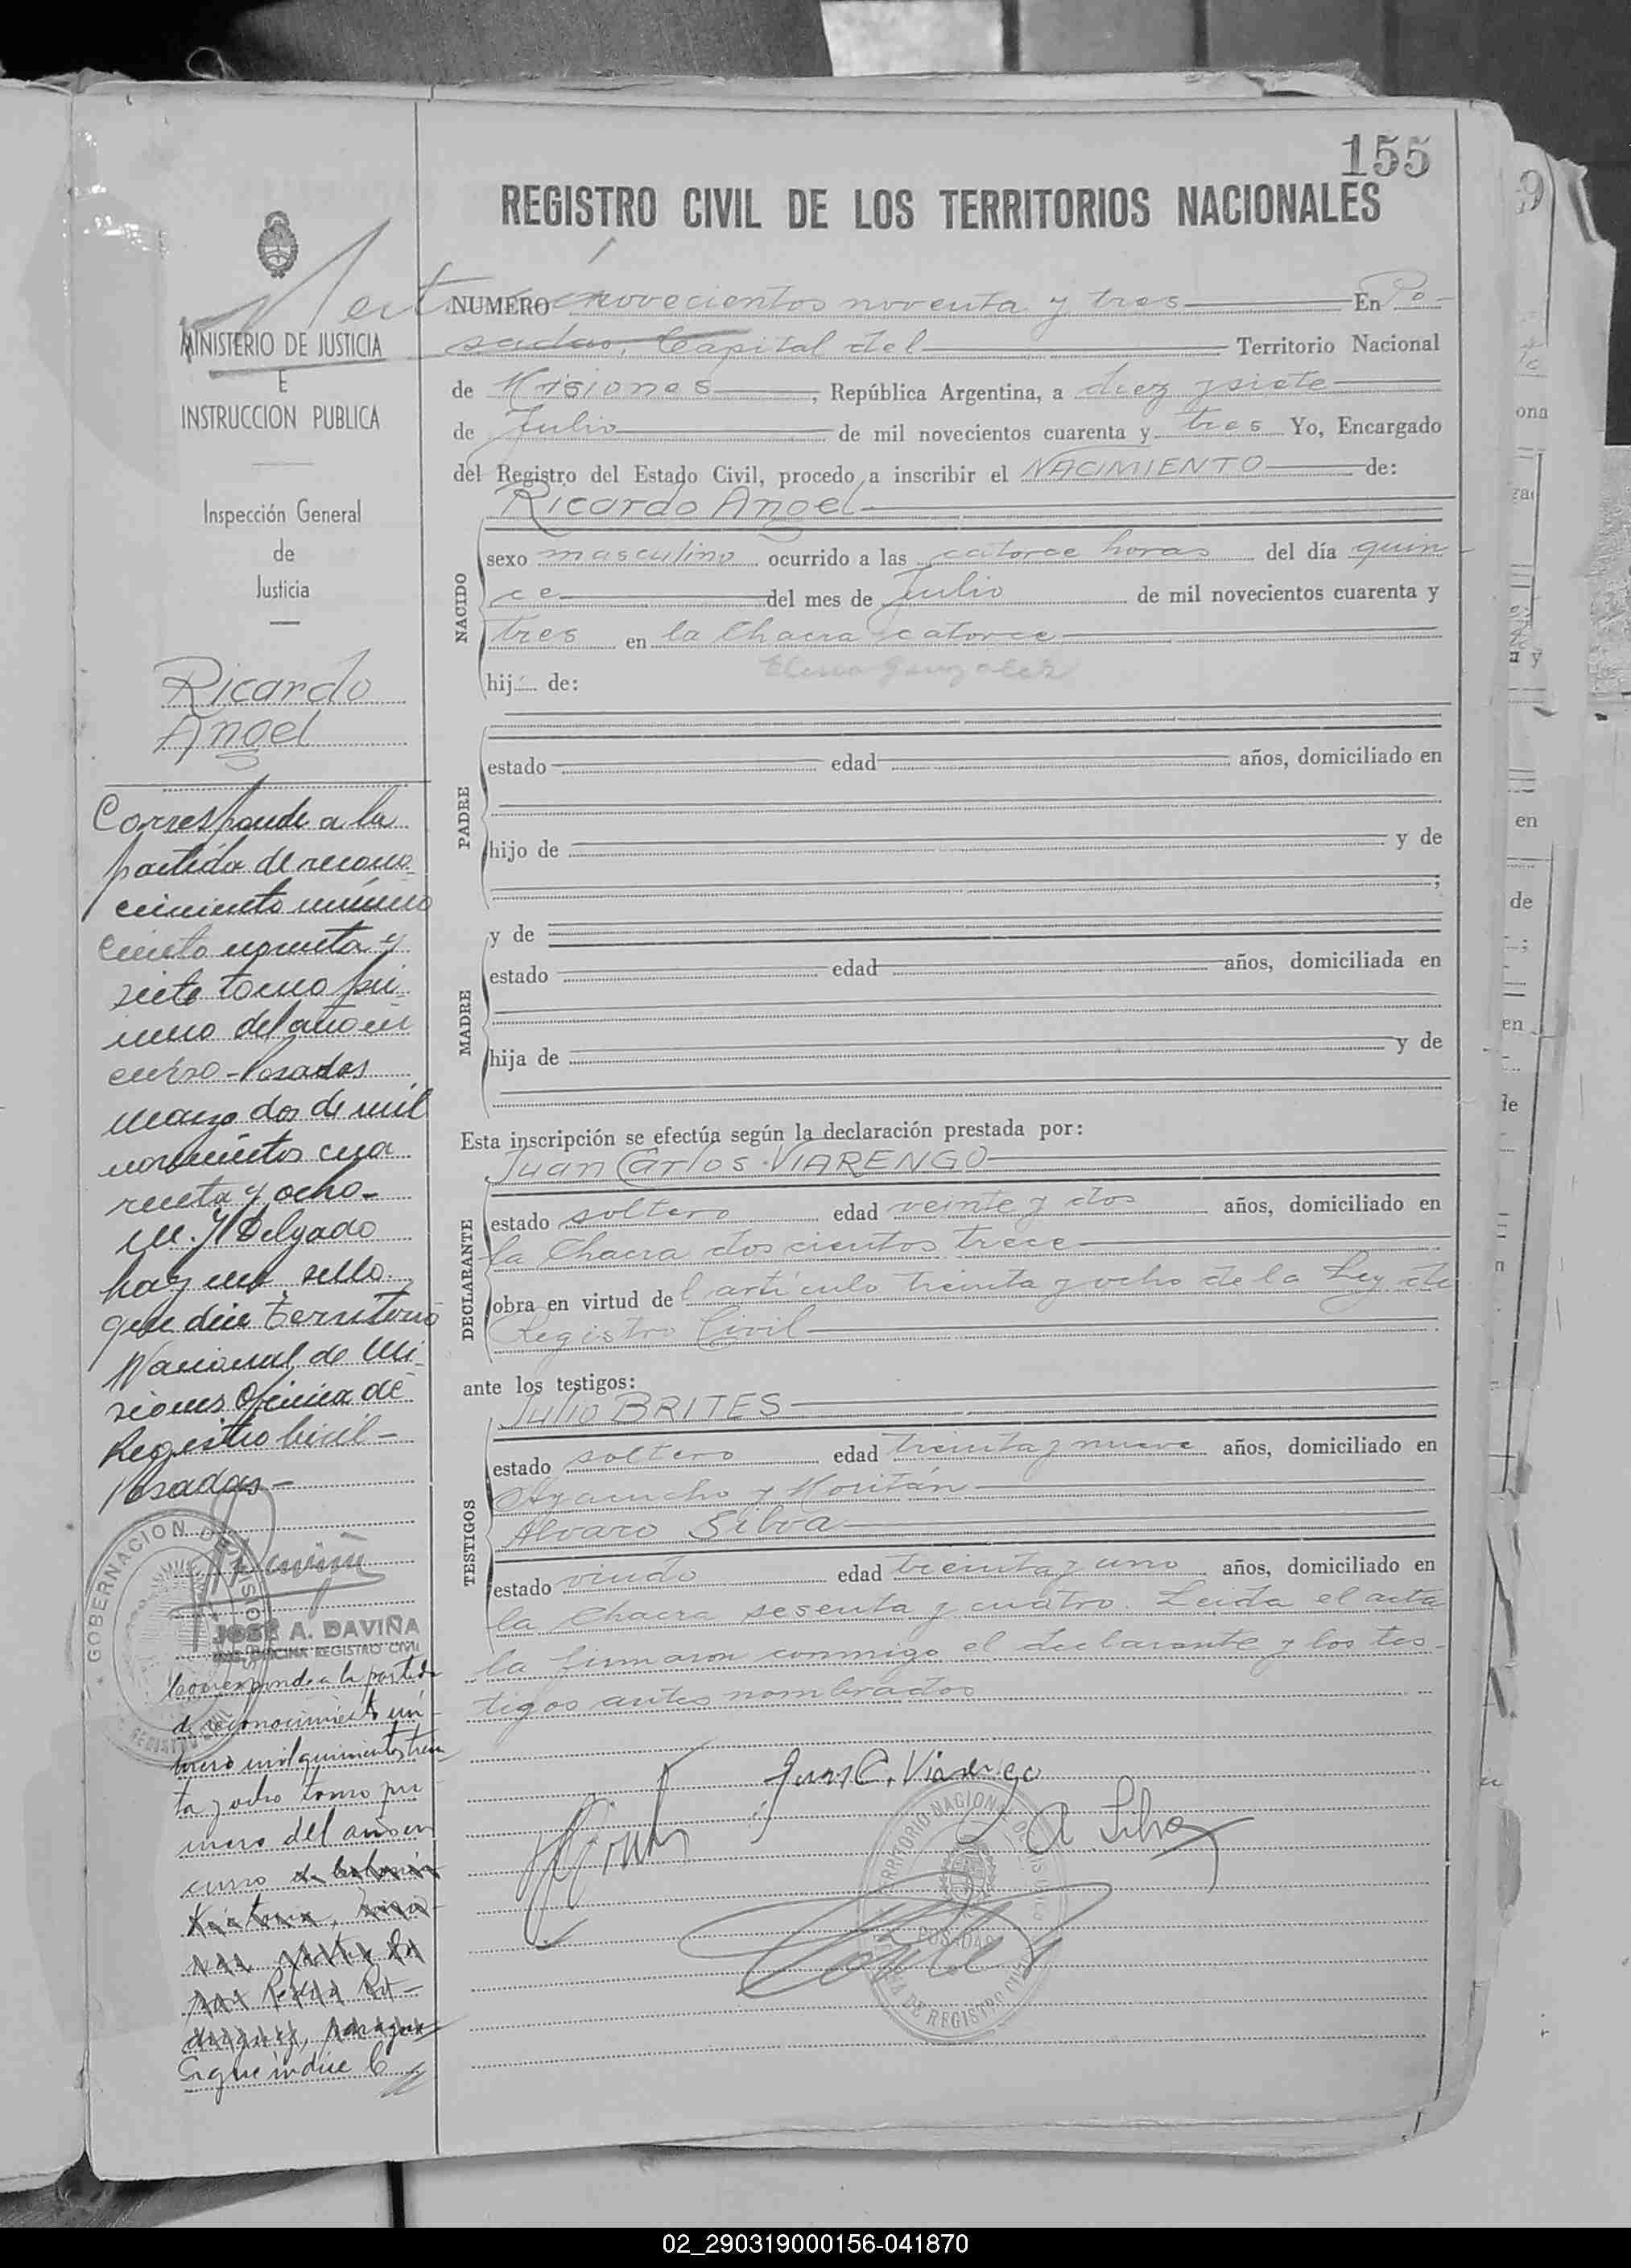 155
REGISTRO CIVIL DE LOS TERRITORIOS NACIONALES
NUMERO novecientos noventa y tres En Po-
sadas, Capital del Territorio Nacional
de Misiones, República Argentina, a diez y siete
de Julio de mil novecientos cuarenta y tres Yo, Encargado
del Registro del Estado Civil, procedo a inscribir el NACIMIENTO de:
Ricardo Angel
NACIDO
sexo masculino ocurrido a las catorce horas del día quin-
ce del mes de Julio de mil novecientos cuarenta y
tres en la Chacra catorce
Elena Gonzalez
hij de:
PADRE
estado edad años, domiciliado en
hijo de y de
y de
MADRE
estado edad años, domiciliada en
hija de y de
Esta inscripción se efectúa según la declaración prestada por:
Juan Carlos VIARENGO
DECLARANTE
estado soltero edad veinte y dos años, domiciliado en
la Chacra doscientos trece
obra en virtud del artículo treinta y ocho de la Ley de
Registro Civil
ante los testigos:
Julio BRITES
TESTIGOS
estado soltero edad treinta y nueve años, domiciliado en
Ayacucho y Moritán
Alvaro Silva
estado viudo edad treinta y uno años, domiciliado en
la Chacra sesenta y cuatro. Leida el acta
la firmaron conmigo el declarante y los tes-
tigos antes nombrados
Juan C. Viarengo
A Silva
TERRITORIO NACIONAL DE MISIONES
POSADAS
OFICINA DE REGISTRO CIVIL
MINISTERIO DE JUSTICIA
E
INSTRUCCION PUBLICA
Inspección General
de
Justicia
Ricardo
Angel
Corresponde a la
partida de recono-
cimiento número
ciento noventa y
siete tomo pri-
mero del año en
curso - Posadas
marzo dos de mil
novecientos cua
renta y ocho-
M. J. Delgado
hay un sello
que dice Territorio
Nacional de Mi-
siones Oficina de
Registro Civil -
Posadas -
GOBERNACION DE MISIONES
REGISTRO CIVIL
JOSÉ A. DAVIÑA
ENC. OFICINA REGISTRO CIVIL
Corresponde a la partida
de reconocimiento nú-
mero mil quinientos trein
ta y ocho tomo pri
mero del año en
curso
Sigue índice C
02_290319000156-041870